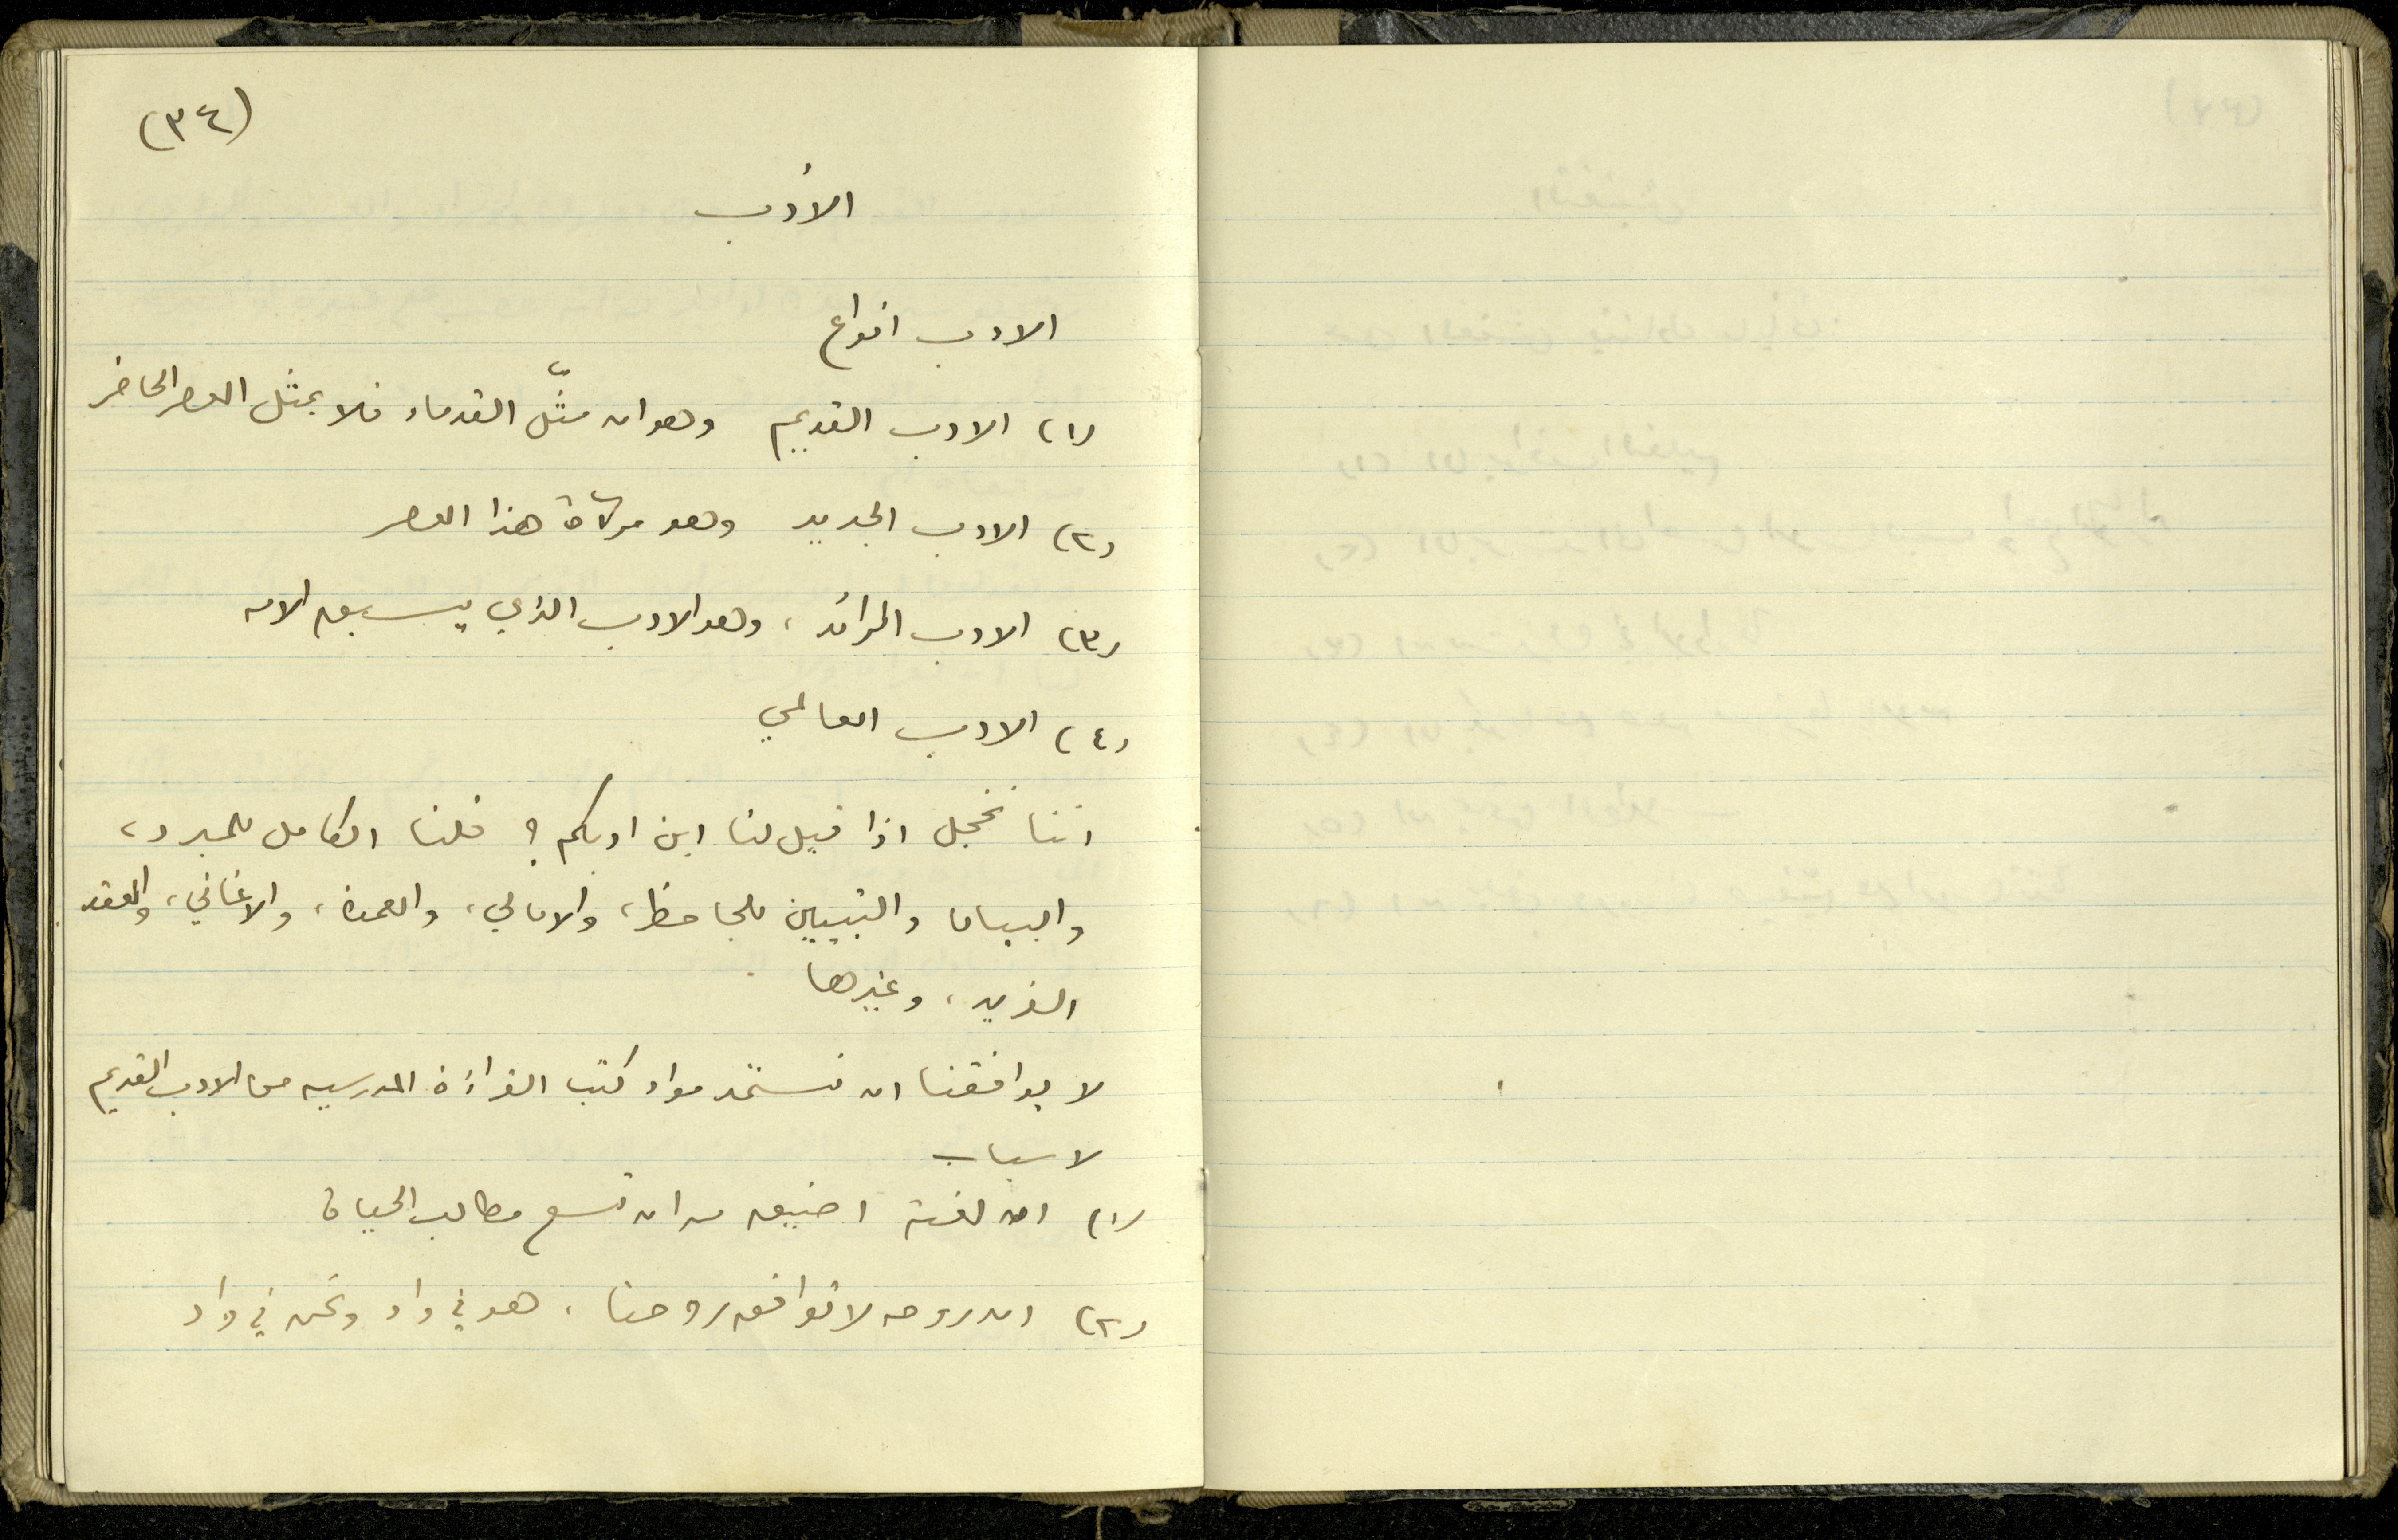 (٣٤)
الأدب
الادب انواع
(١) الادب القديم وهو ان مثّل القدماء فلا يمثل العصر الحاضر
(٢) الادب الجديد وهو مرآة هذا العصر
(٣) الادب الرائد، وهو الادب الذي يسبق الامة
(٤) الادب العالمي
اننا نخجل اذا قيل لنا اين ادبكم؟ قلنا الكامل للمبرد،
والبيان والتبيين للجاحظ، والامالي، والعمدة، والاغاني، والعقد
الفريد، وغيرها
لا يوافقنا ان نستمد مواد كتب القراءة المدرسيه من الادب القديم
لاسباب
(١) ان لغته اضيق من ان تسع مطالب الحياة
(٢) ان روحه لا توافق روحنا، هو في واد ونحن في واد